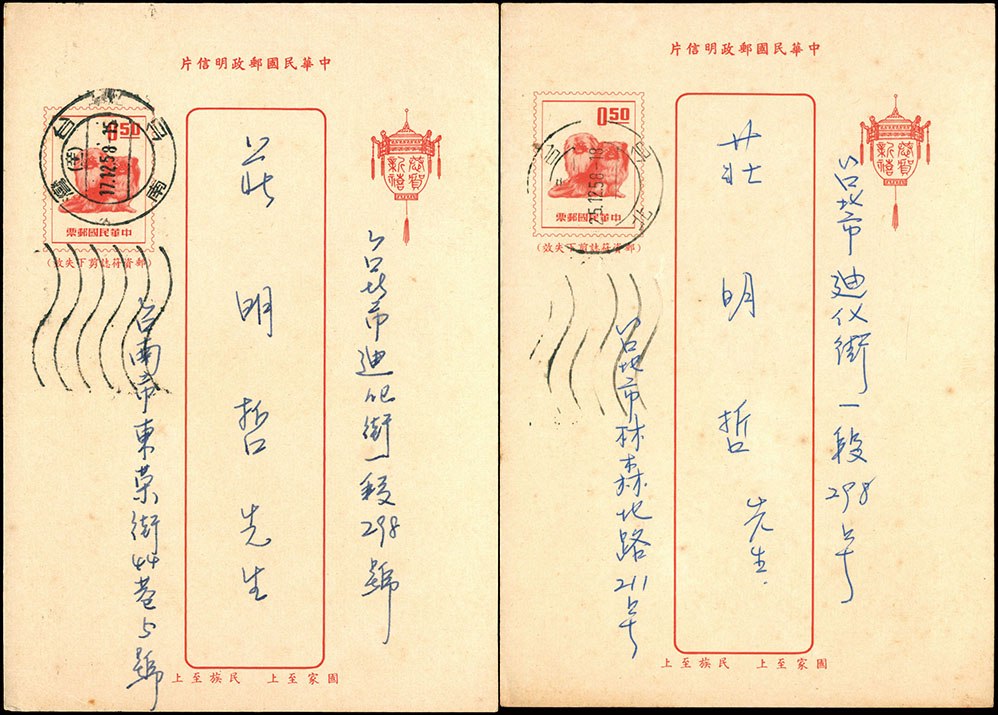 片信明政郵國民華中
0.50
票郵國民華中
(郵資符誌剪下失效)
台南
臺灣
17.12.58.-15
恭賀
新禧
台北市迪化街一段298號
莊明哲先生
台南市東榮街卅巷5號
上至族民 上至家國
片信明政郵國民華中
0.50
票郵國民華中
(郵資符誌剪下失效)
台北
25.12.58.-18
恭賀
新禧
台北市迪化街一段298号
莊明哲先生.
台北市林森北路211号
上至族民 上至家國